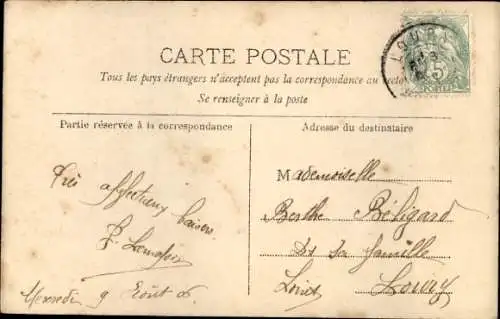 CARTE POSTALE
Tous les pays étrangers n'acceptent pas la correspondance au
Se renseigner à la poste
Partie réservée à la correspondance
Adresse du destinataire
affectueux baisers
Mercredi 9 Août
Mademoiselle
Berthe Béligard
sa famille
Loiret Loury
5